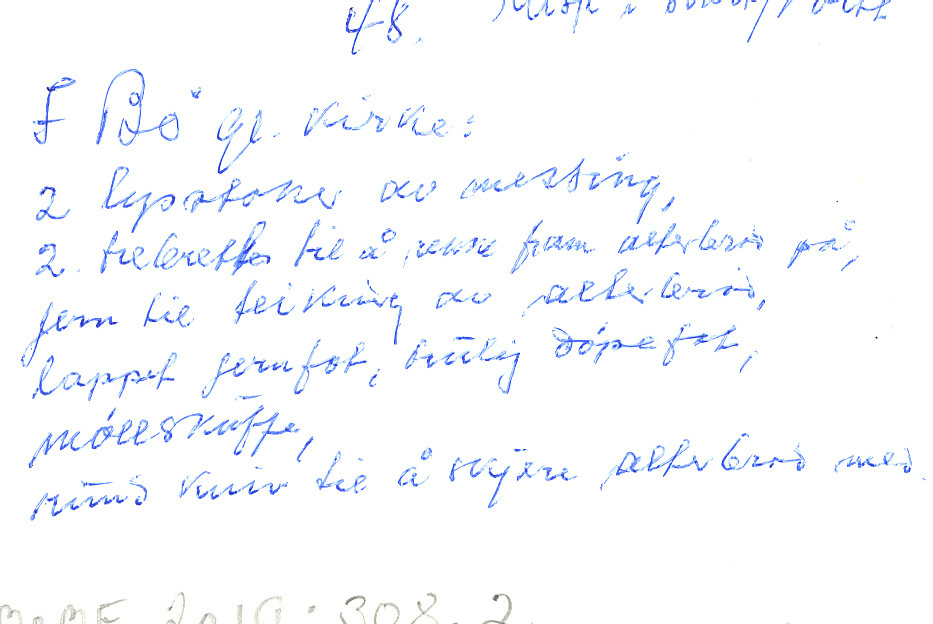 48.
F Bö gl. kirke:
2 lysstaker av messing,
2 trebretter til å reise fram alterbrød på,
jern til teiking av alterbrød,
lappet jernfot, trulig døpefot,
møllskuffe,
rund kniv til å skjere alterbrød med.
2019: 308. 2